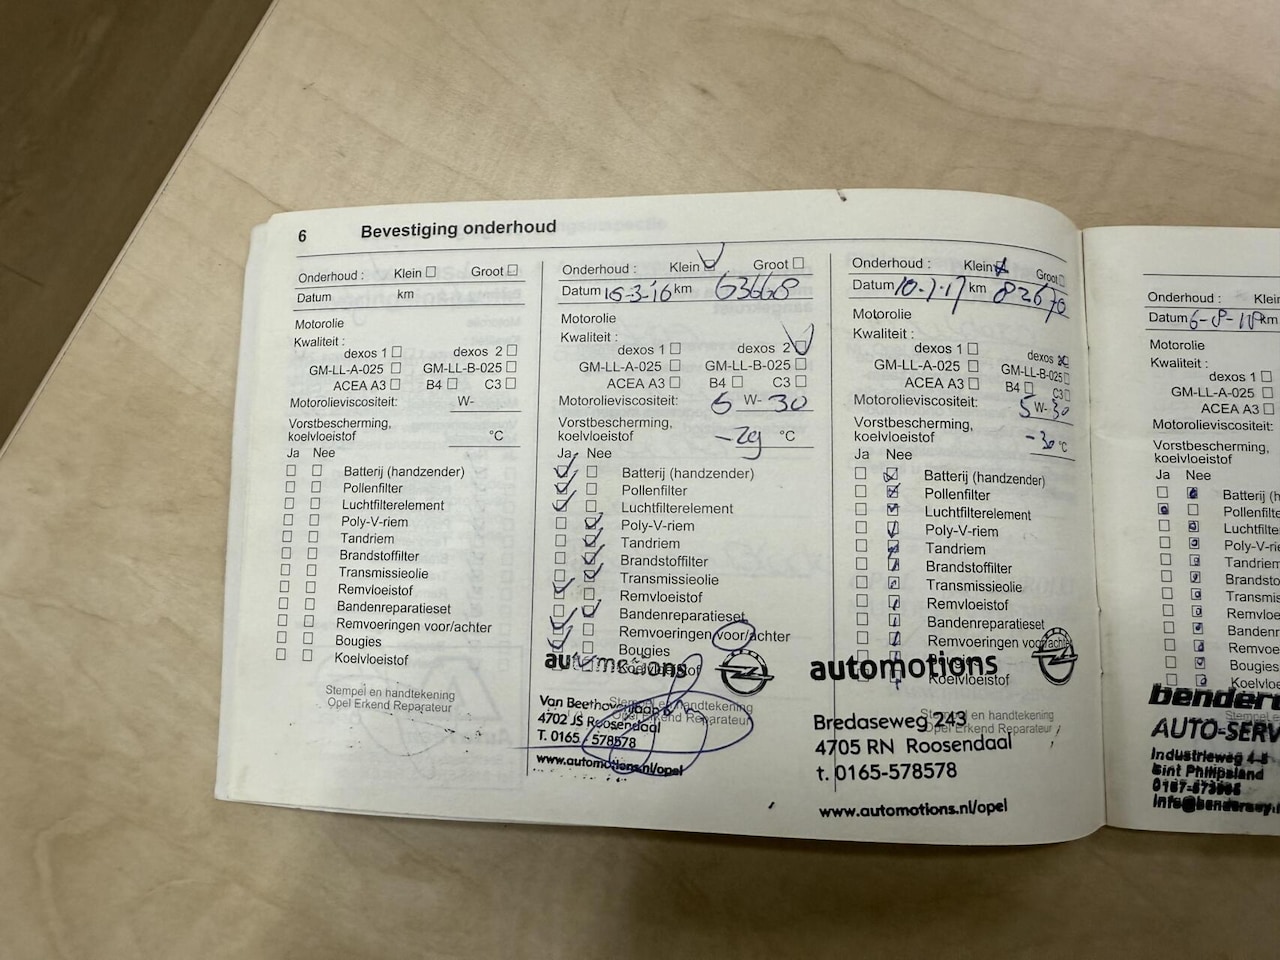 6 Bevestiging onderhoud
Onderhoud : Klein Groot
Datum km
Motorolie
Kwaliteit :
dexos 1 dexos 2
GM-LL-A-025 GM-LL-B-025
ACEA A3 B4 C3
Motorolieviscositeit: W-
Vorstbescherming,
koelvloeistof °C
Ja Nee
Batterij (handzender)
Pollenfilter
Luchtfilterelement
Poly-V-riem
Tandriem
Brandstoffilter
Transmissieolie
Remvloeistof
Bandenreparatieset
Remvoeringen voor/achter
Bougies
Koelvloeistof
Stempel en handtekening
Opel Erkend Reparateur
Onderhoud : Klein Groot
Datum 15-3-16 km 63668
Motorolie
Kwaliteit :
dexos 1 dexos 2
GM-LL-A-025 GM-LL-B-025
ACEA A3 B4 C3
Motorolieviscositeit: 5 W- 30
Vorstbescherming,
koelvloeistof -29 °C
Ja Nee
Batterij (handzender)
Pollenfilter
Luchtfilterelement
Poly-V-riem
Tandriem
Brandstoffilter
Transmissieolie
Remvloeistof
Bandenreparatieset
Remvoeringen voor/achter
Bougies
Koelvloeistof
automotions
Stempel en handtekening
Opel Erkend Reparateur
4702 JS Roosendaal
T. 0165 / 578578
www.automotions.nl/opel
Onderhoud : Klein Groot
Datum km 82670
Motorolie
Kwaliteit :
dexos 1 dexos
GM-LL-A-025 GM-LL-B-025
ACEA A3 B4 C3
Motorolieviscositeit: 5 W- 30
Vorstbescherming,
koelvloeistof -30 °C
Ja Nee
Batterij (handzender)
Pollenfilter
Luchtfilterelement
Poly-V-riem
Tandriem
Brandstoffilter
Transmissieolie
Remvloeistof
Bandenreparatieset
Remvoeringen voor/achter
Bougies
Koelvloeistof
automotions
Stempel en handtekening
Opel Erkend Reparateur
Bredaseweg 243
4705 RN Roosendaal
t. 0165-578578
www.automotions.nl/opel
Onderhoud : Klei
Datum 6-8-18 km
Motorolie
Kwaliteit :
dexos 1
GM-LL-A-025
ACEA A3
Motorolieviscositeit:
Vorstbescherming,
koelvloeistof
Ja Nee
Batterij (h
Pollenfilte
Luchtfilte
Poly-V-ri
Tandriem
Brandsto
Transmis
Remvloe
Bandenr
Remvoer
Bougies
Koelvloe
AUTO-SERV
Industrieweg 4-8
Sint Philipsland